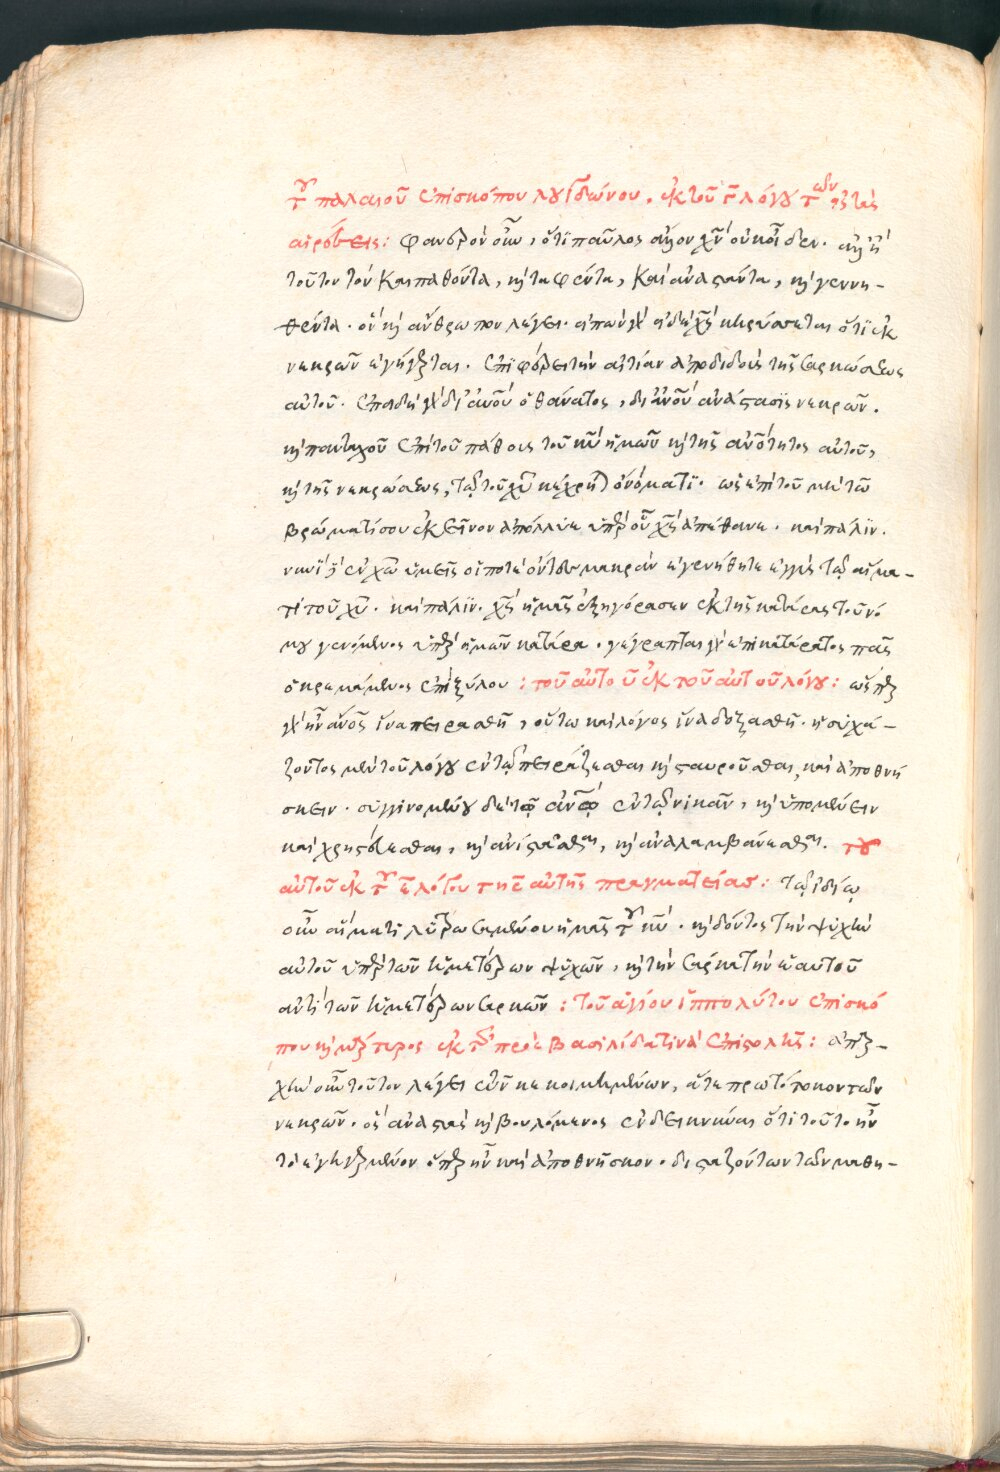 τοῦ παλαιοῦ ἐπισκόπου λουγδώνου. ἐκ τοῦ γ̄ λόγου τῶν εἰς τὰς
αἱρέσεις: φανερὸν οὖν, ὅτι παῦλος ἄλλον χν̄ οὐκ οἶδεν. ἀλλ' ἢ
τοῦτον τὸν καὶ παθόντα, κ(αὶ) ταφέντα, καὶ ἀναστάντα, κ(αὶ) γεννη-
θέντα. ὃν κ(αὶ) ἄνθρωπον λέγει. εἰπὼν γὰρ εἰ δὲ χς̄ κηρύσσεται ὅτι ἐκ
νεκρῶν ἐγήγερται. ἐπιφέρει τὴν αἰτίαν ἀποδιδοὺς τῆς σαρκώσεως
αὐτοῦ. ἐπειδὴ γὰρ δι' ἀνοῦ ὁ θάνατος, δι' ἀνοῦ ἀνάστασις νεκρῶν.
κ(αὶ) πανταχοῦ ἐπὶ τοῦ πάθους τοῦ κῡ ἡμῶν κ(αὶ) τῆς ἀνότητος αὐτοῦ,
κ(αὶ) τῆς νεκρώσεως, τῷ τοῦ χῡ κέχρηται ὀνόματι. ὡς ἐπὶ τοῦ μὴ τῶ
βρώματί σου ἐκεῖνον ἀπόλλυε ὑπὲρ οὗ χς̄ ἀπέθανε. καὶ πάλιν.
νυνὶ δὲ ἐν χω̄ ὑμεῖς οἱ ποτὲ ὄντες μακρὰν ἐγενήθητε ἐγγὺς τῷ αἵμα-
τι τοῦ χῡ. καὶ πάλιν. χς̄ ἡμᾶς ἐξηγόρασεν ἐκ τῆς κατάρας τοῦ νό
μου γενόμενος ὑπὲρ ἡμῶν κατάρα. γέγραπται γὰρ ἐπικατάρατος πᾶς
ὁ κρεμάμενος ἐπὶ ξύλου: τοῦ αὐτοῦ ἐκ τοῦ αὐτοῦ λόγου: ὥσπερ
γὰρ ἦν ἄνος ἵνα πειρασθῇ, οὕτω καὶ λόγος ἵνα δοξασθῇ. ἡσυχά-
ζοντος μὲν τοῦ λόγου ἐν τῷ πειράζεσθαι κ(αὶ) σταυροῦσθαι, καὶ ἀποθνή
σκειν. συγγινομένου δὲ τῷ ἀνω ἐν τῷ νικᾶν, κ(αὶ) ὑπομένειν
καὶ χρηστεύεσθαι, κ(αὶ) ἀνίστασθαι, κ(αὶ) ἀναλαμβάνεσθαι. τοῦ
αὐτοῦ ἐκ τοῦ ε̄ λόγου τῆς αὐτῆς πραγματείας: τῷ ἰδίῳ
οὖν αἵματι λυτρωσαμένου ἡμᾶς τοῦ κῡ. κ(αὶ) δόντος τὴν ψυχὴν
αὐτοῦ ὑπὲρ τῶν ἡμετέρων ψυχῶν, κ(αὶ) τὴν σάρκα τὴν ἑαυτοῦ
ἀντὶ τῶν ἡμετέρων σαρκῶν: τοῦ ἁγίου ἱππολύτου ἐπισκό
που κ(αὶ) μάρτυρος ἐκ τῆς πρὸς βασιλίδα τινὰ ἐπιστολῆς: ἀπαρ-
χὴν οὖν τοῦτον λέγει τῶν κεκοιμημένων, ἅτε πρωτότοκον τῶν
νεκρῶν. ὃς ἀναστὰς κ(αὶ) βουλόμενος ἐνδεικνύναι ὅτι τοῦτο ἦν
τὸ ἐγηγερμένον ὅπερ ἦν καὶ ἀποθνῆσκον. δισταζόντων τῶν μαθη-